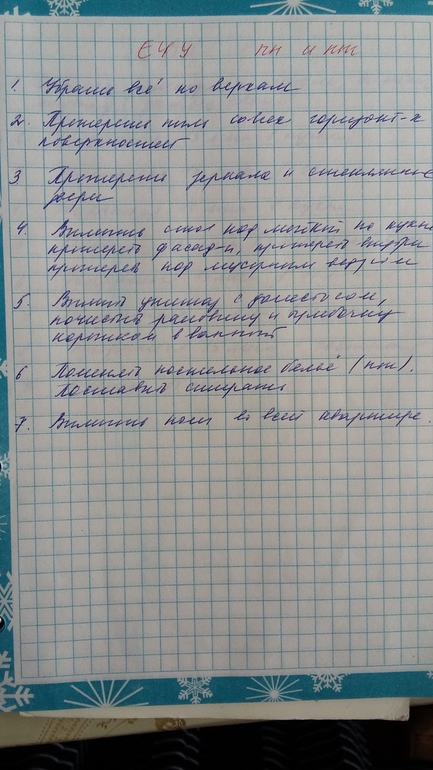 ЕЧУ пн и пт
1. Убрать всё по верхам
2. Протереть пыль со всех горизонт-х
поверхностей
3 Протереть зеркала и стеклянные
двери
4. Вымыть стол под мойкой на кухне
протереть фасад-ы, протереть внутри
протереть под мусорным ведром
5. Вымыть унитаз с доместосом,
почистить раковину и
порошком в ванной
6 Поменять постельное бельё (пт).
Поставить стирать
7. Вымыть полы во всей квартире.